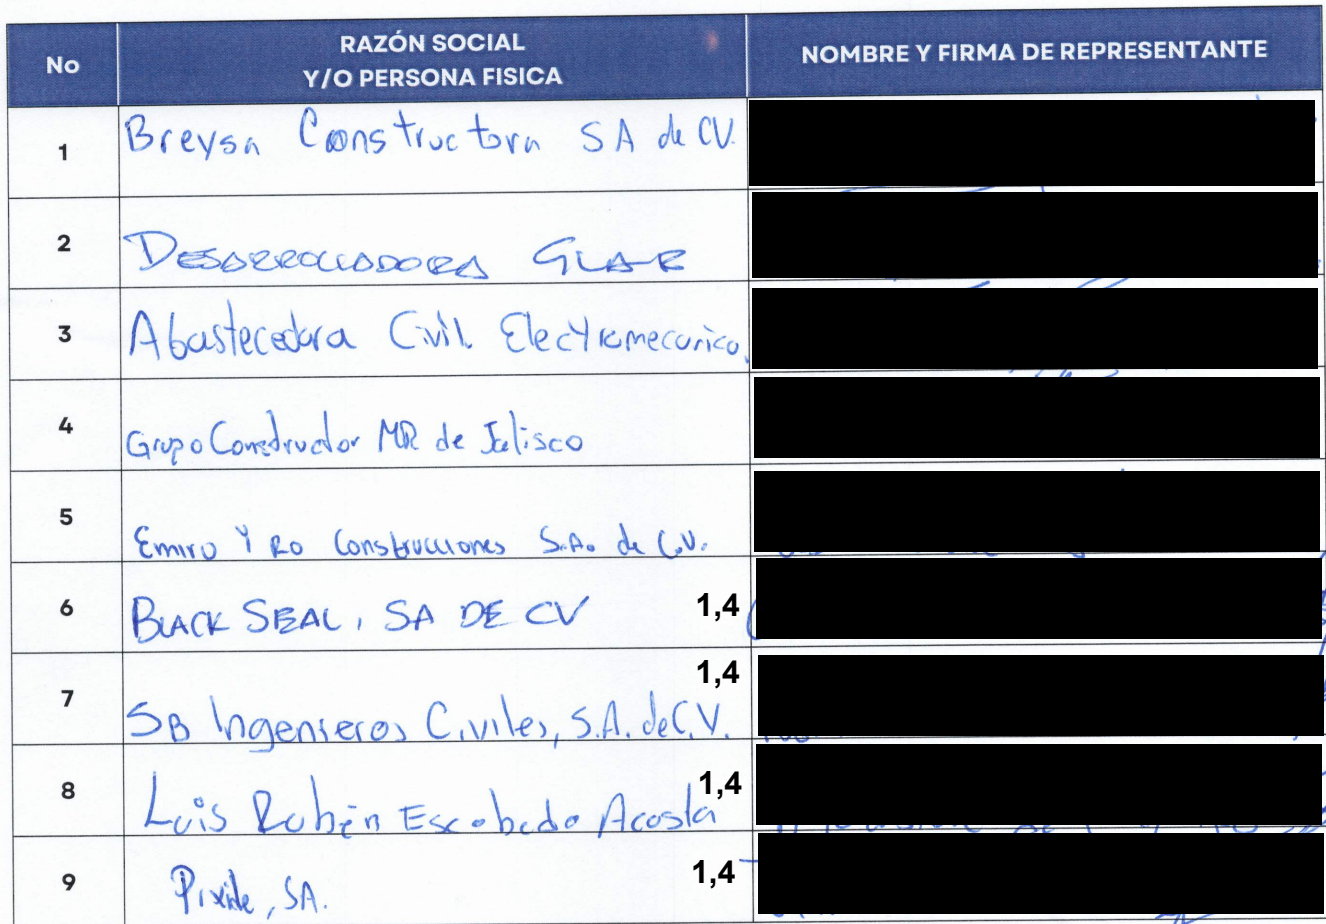 No
RAZÓN SOCIAL
Y/O PERSONA FISICA
NOMBRE Y FIRMA DE REPRESENTANTE
1 Breysa Constructora SA de CV.
2 DESARROLLADORA GLAR
3 Abastecedora Civil Electromecanico.
4 Grupo Constructor MR de Jalisco
5 Emiro Y Ro Construcciones S.A. de C.V.
6 BLACK SEAL, SA DE CV 1,4
7 SB Ingenieros Civiles, S.A. de C.V. 1,4
8 Luis Rubén Escobedo Acosta 1,4
9 Pixide, SA. 1,4